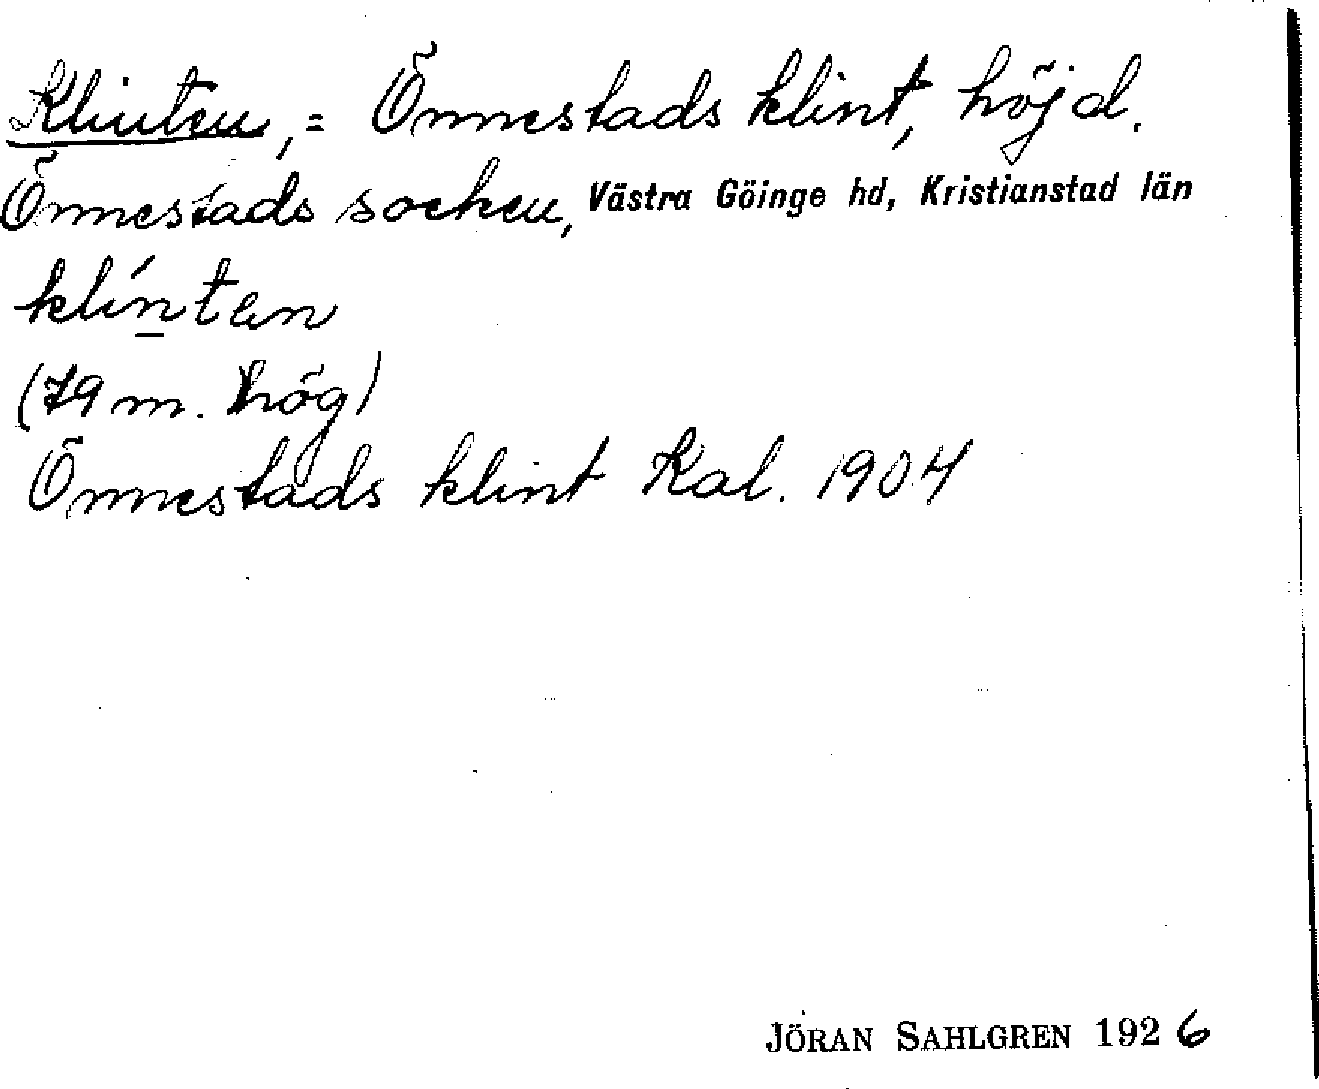 Klinten, = Önnestads klint, höjd.
Önnestads socken, Västra Göinge hd, Kristianstad län
klínten
(79 m. hög)
Önnestads klint Kal. 1904
JÖRAN SAHLGREN 1926